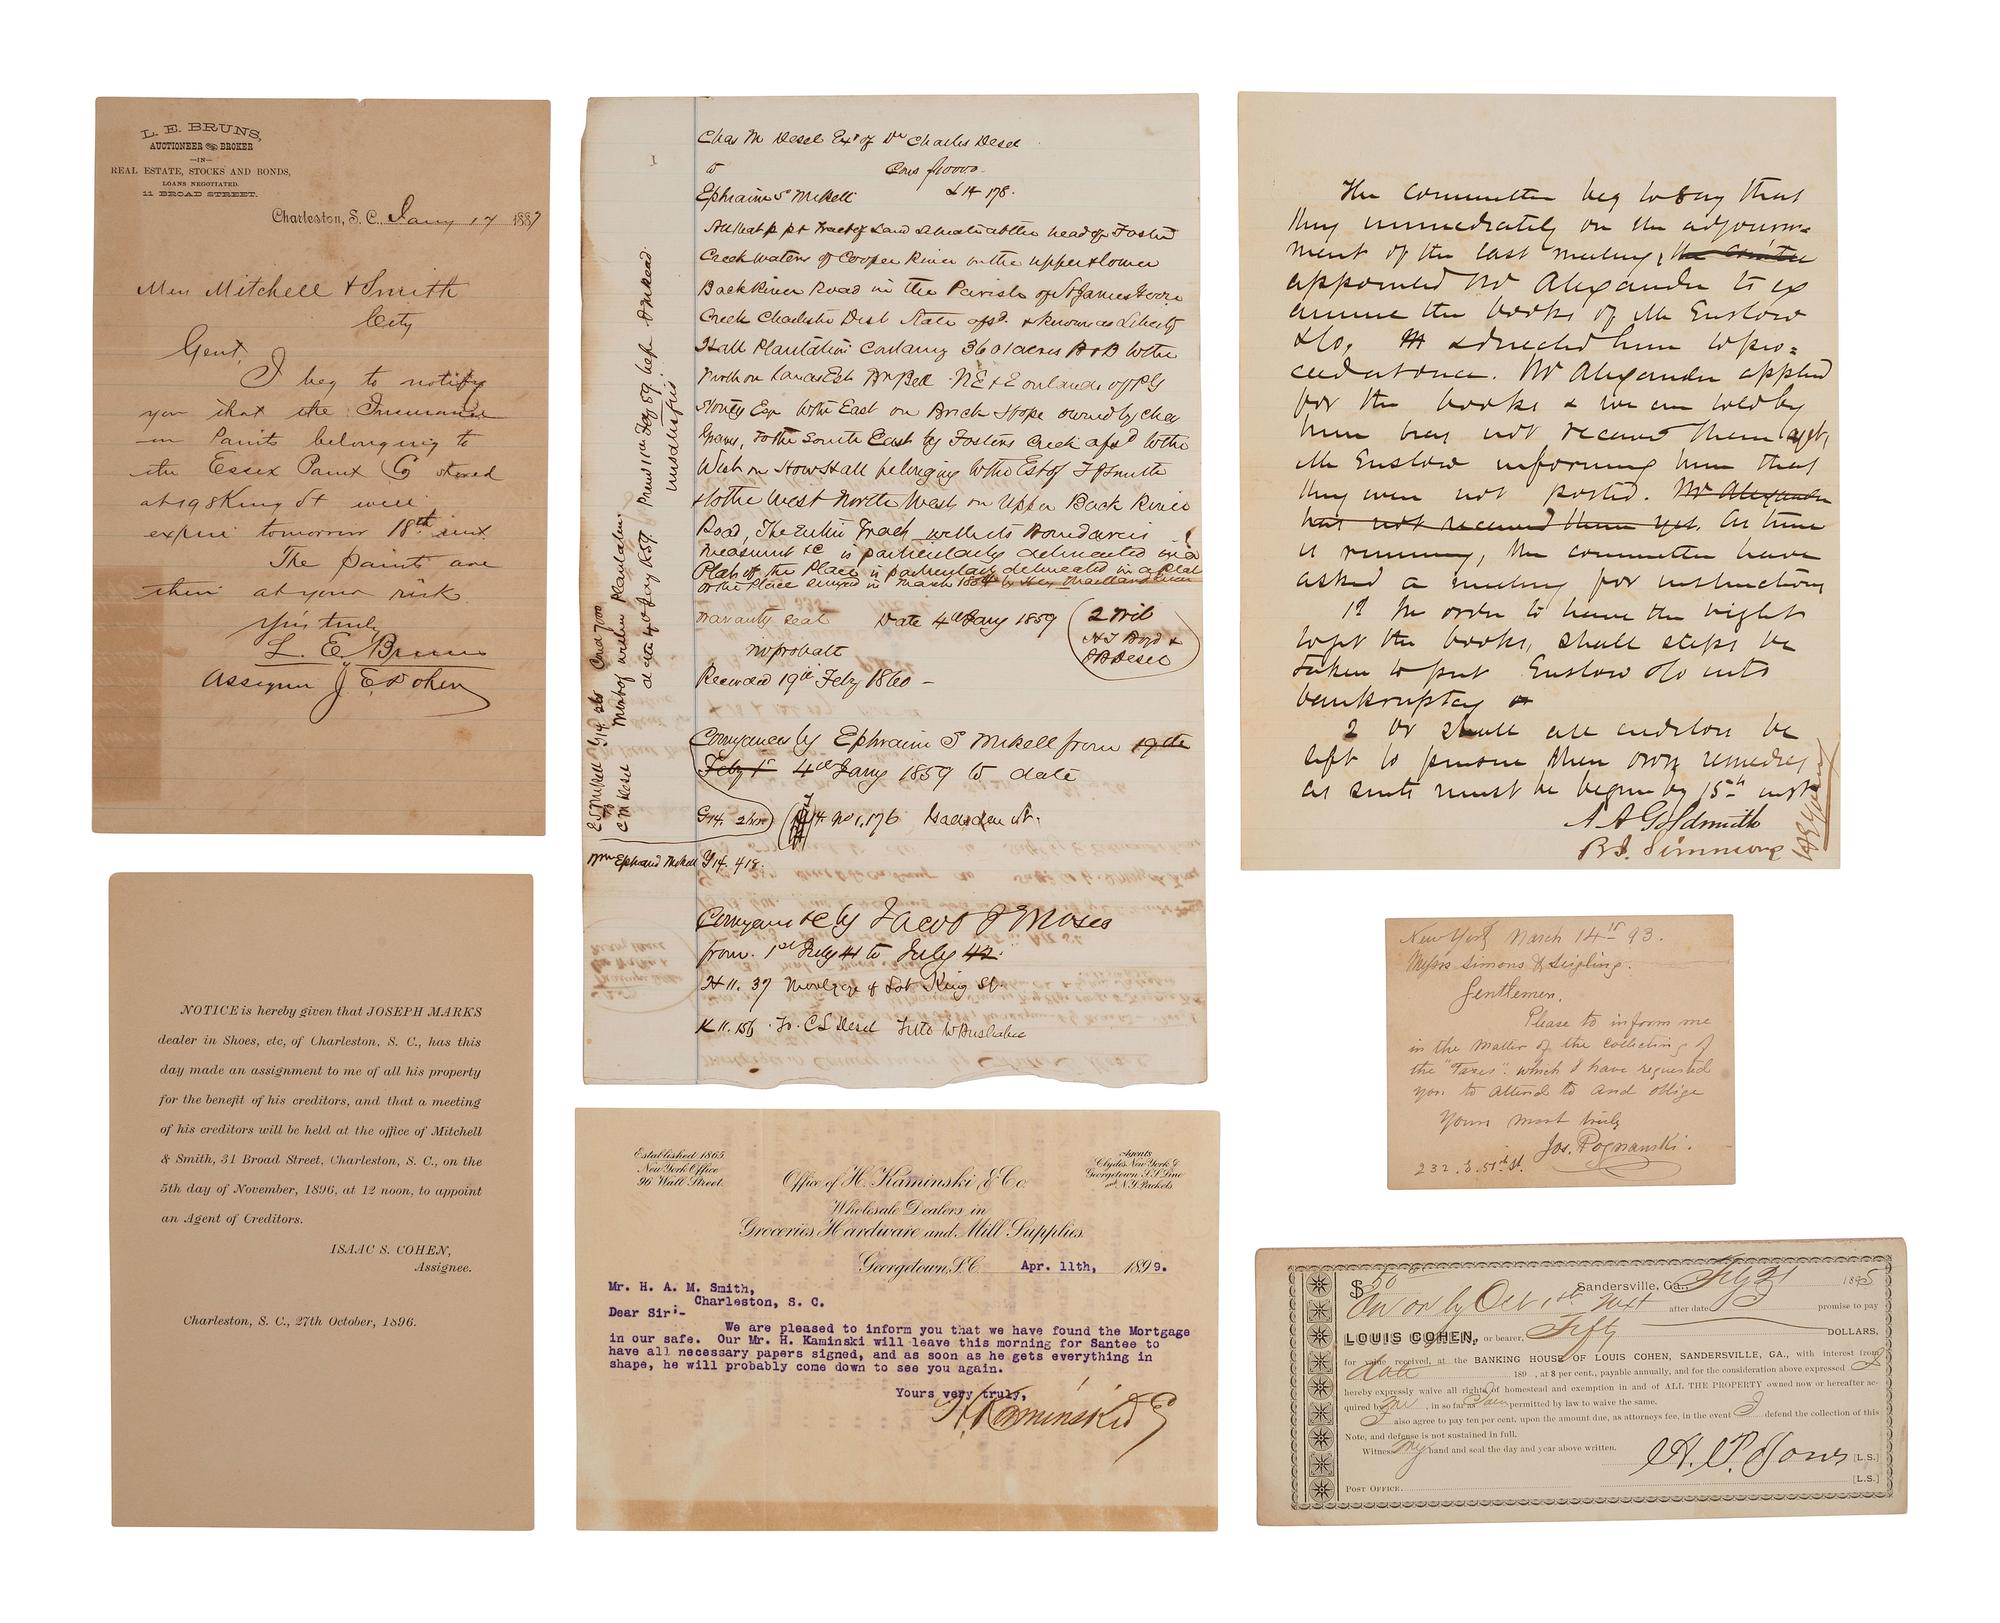 L. E. BRUNS,
AUCTIONEER AND BROKER
—IN—
REAL ESTATE, STOCKS AND BONDS,
LOANS NEGOTIATED.
11 BROAD STREET.
Charleston, S. C., Jany 17 1887
Mess Mitchell & Smith
City
Gent,
I beg to notify
you that the Insurance
on Paints belonging to
the Essex Paint Co stored
at 198 King St will
expire tomorrow 18th inst.
The paints are
then at your risk.
Yrs truly
L. E. Bruns
Assignee J. E. Cohen
NOTICE is hereby given that JOSEPH MARKS
dealer in Shoes, etc, of Charleston, S. C., has this
day made an assignment to me of all his property
for the benefit of his creditors, and that a meeting
of his creditors will be held at the office of Mitchell
& Smith, 31 Broad Street, Charleston, S. C., on the
5th day of November, 1896, at 12 noon, to appoint
an Agent of Creditors.
ISAAC S. COHEN,
Assignee.
Charleston, S. C., 27th October, 1896.
Chas M Desel Exr of Dr Charles Desel
to
Ephraim S Mikell
L 14 178.
All that p pt Tract of Land situate at the head of Foster
Creek waters of Cooper River on the upper & lower
Back River Road in the Parish of St James Goose
Creek Charleston Dist State afsd. & known as Liberty
Hall Plantation Containg 3601 acres B & B to the
North on Lands Est Wm Bell NE & E on lands of P G
Stoney Esq to the East on Brick Hope owned by Chs
Graves, To the South East by Fosters Creek afsd to the
West on How Hall belonging to the Est of
& to the West North West on Upper Back River
Road, The Entire Tract with its Boundaries
measurmt &c is particularly delineated in a
Plat of the Place is particularly delineated in a Plat
Warranty Seal Date 4th Jany 1859
2 Wit
no probate
Recorded 19th Feby 1860 —
Conveyances by Ephraim S Mikell from 19th
Feby 1st 4th Jany 1859 to date
G14. 2 hore No 1, 176 Gadsden st.
Wm Ephraim Mikell G14. 418.
Conveyance &c by Jacob J Moses
from 1st July 41 to July 42.
H 11. 37 Mortgage of Lot King St.
K 11. 156 To C L Desel
Established 1865
New York Office
96 Wall Street.
Agents
Clydes New York &
Georgetown S.S. Line
and N.Y. Packets.
Office of H. Kaminski & Co.
Wholesale Dealers in
Groceries, Hardware and Mill Supplies.
Georgetown, S.C. Apr. 11th, 1899.
Mr. H. A. M. Smith,
Charleston, S. C.
Dear Sir:-
We are pleased to inform you that we have found the Mortgage
in our safe. Our Mr. H. Kaminski will leave this morning for Santee to
have all necessary papers signed, and as soon as he gets everything in
shape, he will probably come down to see you again.
Yours very truly,
H. Kaminski & Co
The committee beg to say that
they immediately on the adjourn=
ment of the last meeting, the Comitee
appointed Mr Alexander to ex
amine the books of Mr Enslow
& Co, & directed him to pro=
ceed at once. Mr Alexander applied
for the books & we are told by
him has not received them yet,
Mr Enslow informing him that
they were not posted. Mr Alexander
has not received them yet. As time
is running, the committee have
asked a meeting for instructions
1st In order to have the right
to get the books, shall steps be
taken to put Enslow & Co into
bankruptcy or
2 Or shall all creditors be
left to pursue their own remedies
as suits must be begun by 15th inst
A A Goldsmith
B I. Simmons
New York March 14th 93.
Messrs Simons & Seigling.
Gentlemen.
Please to inform me
in the matter of the Collecting of
the "Taxes" which I have requested
you to attend to and oblige
Yours most truly
Jos. Poznanski.
232. E. 51st St.
$50 00 Sandersville, Ga., 1895
On or by Oct 1st next after date I promise to pay
LOUIS COHEN, or bearer, Fifty DOLLARS,
for value received, at the BANKING HOUSE OF LOUIS COHEN, SANDERSVILLE, GA., with interest from
date 189 , at 8 per cent., payable annually, and for the consideration above expressed I
hereby expressly waive all rights of homestead and exemption in and of ALL THE PROPERTY owned now or hereafter ac-
quired by me, in so far as I am permitted by law to waive the same.
I also agree to pay ten per cent. upon the amount due, as attorneys fee, in the event I defend the collection of this
Note, and defense is not sustained in full.
Witness my hand and seal the day and year above written.
[L.S.]
[L.S.]
POST OFFICE